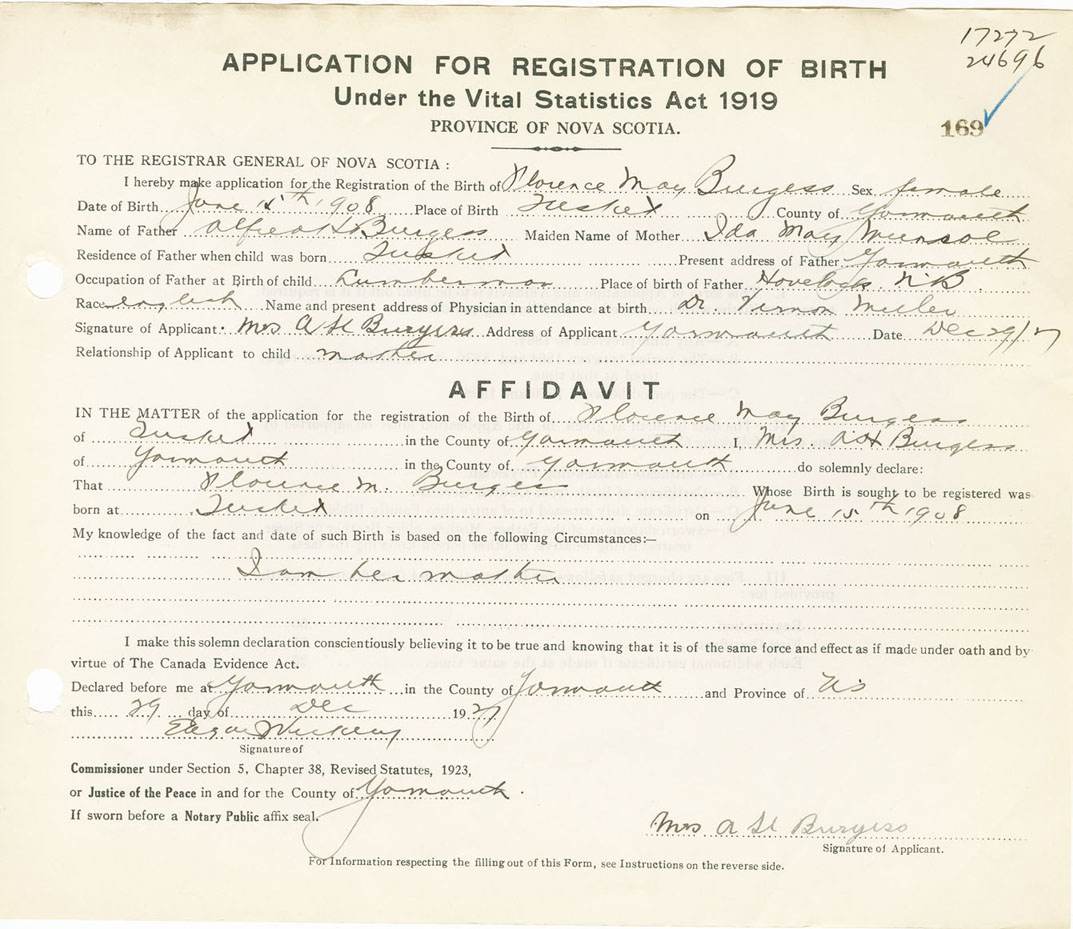 17272
24696
APPLICATION FOR REGISTRATION OF BIRTH
Under the Vital Statistics Act 1919
PROVINCE OF NOVA SCOTIA.
169
TO THE REGISTRAR GENERAL OF NOVA SCOTIA :
I hereby make application for the Registration of the Birth of Florence May Burgess Sex female
Date of Birth June 15th 1908 Place of Birth Tusket County of Yarmouth
Name of Father Alfred H Burgess Maiden Name of Mother Ida May
Residence of Father when child was born Tusket Present address of Father Yarmouth
Occupation of Father at Birth of child Lumberman Place of birth of Father Havelock N.B.
Race english Name and present address of Physician in attendance at birth Dr. Vernon Miller
Signature of Applicant. Mrs A H Burgess Address of Applicant Yarmouth Date Dec 29/27
Relationship of Applicant to child mother
AFFIDAVIT
IN THE MATTER of the application for the registration of the Birth of Florence May Burgess
of Tusket in the County of Yarmouth I, Mrs. A H Burgess
of Yarmouth in the County of Yarmouth do solemnly declare:
That Florence M. Burgess Whose Birth is sought to be registered was
born at Tusket on June 15th 1908
My knowledge of the fact and date of such Birth is based on the following Circumstances:—
I am her mother
I make this solemn declaration conscientiously believing it to be true and knowing that it is of the same force and effect as if made under oath and by
virtue of The Canada Evidence Act.
Declared before me at Yarmouth in the County of Yarmouth and Province of NS
this 29 day of Dec 1927
Signature of
Commissioner under Section 5, Chapter 38, Revised Statutes, 1923,
or Justice of the Peace in and for the County of Yarmouth.
If sworn before a Notary Public affix seal.
Mrs A H Burgess
Signature of Applicant.
For Information respecting the filling out of this Form, see Instructions on the reverse side.